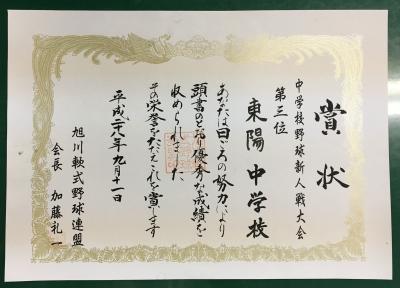 賞状
中学校野球新人戦大会
第三位
東陽中学校
あなたは日ごろの努力により
頭書のとおり優秀な成績を
収められました
その栄誉をたたえこれを賞します
平成二十八年九月十一日
旭川軟式野球連盟
会長 加藤礼一